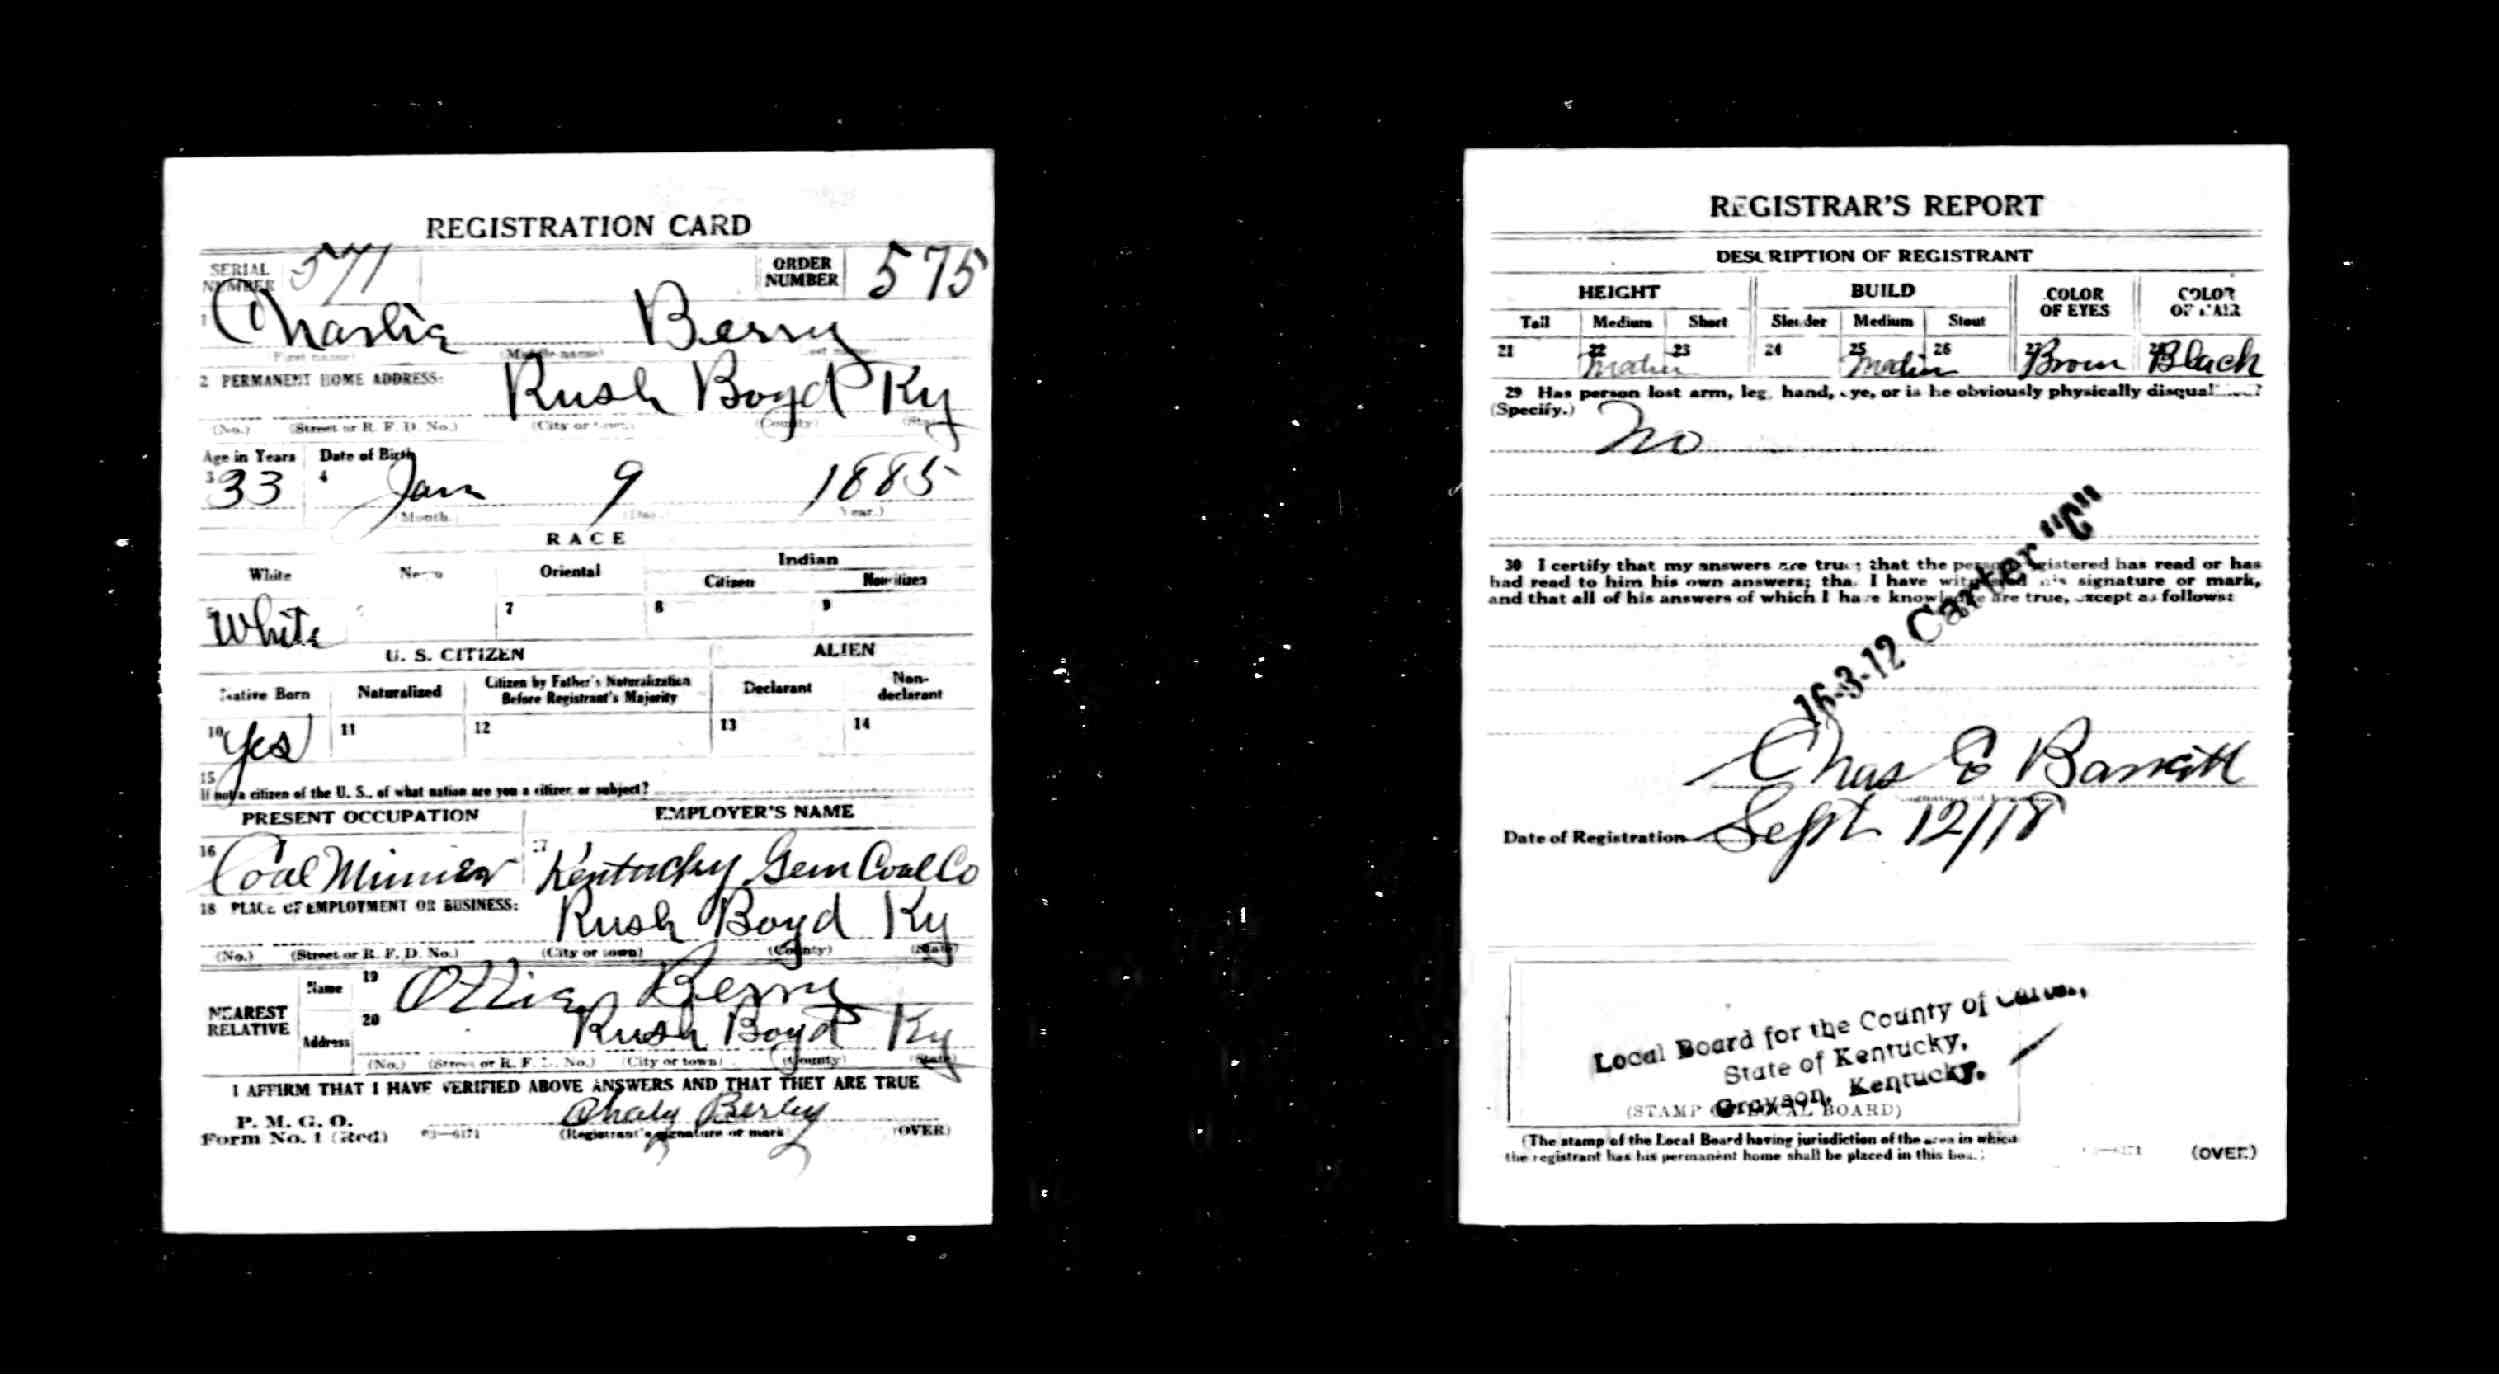 REGISTRATION CARD
SERIAL NUMBER 571 ORDER NUMBER 575
1 Charlie Berry
(First name) (Middle name)
2 PERMANENT HOME ADDRESS: Rush Boyd Ky
(No.) (Street or R. F. D. No.) (City or town) (County) (State)
Age in Years Date of Birth
3 33 4 Jan 9 1885
(Month.) (Day.) (Year.)
RACE
White Negro Oriental Indian
Citizen Noncitizen
5 White 7 8 9
U. S. CITIZEN ALIEN
Native Born Naturalized Citizen by Father's Naturalization Before Registrant's Majority Declarant Non-declarant
10 Yes 11 12 13 14
15
If not a citizen of the U. S., of what nation are you a citizen or subject?
PRESENT OCCUPATION EMPLOYER'S NAME
16 Coal Minier 17 Kentucky Gem Coal Co
18 PLACE OF EMPLOYMENT OR BUSINESS: Rush Boyd Ky
(No.) (Street or R. F. D. No.) (City or town) (County) (State)
NEAREST RELATIVE Name 19 Ollie Berry
Address 20 Rush Boyd Ky
(No.) (Street or R. F. D. No.) (City or town) (County) (State)
I AFFIRM THAT I HAVE VERIFIED ABOVE ANSWERS AND THAT THEY ARE TRUE
P. M. G. O.
Form No. 1 (Red) 03—6171 Chaly Berley
(Registrant's signature or mark) (OVER)
REGISTRAR'S REPORT
DESCRIPTION OF REGISTRANT
HEIGHT BUILD COLOR OF EYES COLOR OF HAIR
Tall Medium Short Slender Medium Stout
21 22 23 24 25 26 27 Brown 28 Black
29 Has person lost arm, leg, hand, eye, or is he obviously physically disqualified?
(Specify.) No
30 I certify that my answers are true; that the person registered has read or has
had read to him his own answers; that I have witnessed his signature or mark,
and that all of his answers of which I have knowledge are true, except as follows:
16-3-12 Carter "C"
Chas E Barrett
Date of Registration Sept 12/18
Local Board for the County of Carter,
State of Kentucky,
Grayson, Kentucky.
(STAMP OF LOCAL BOARD)
(The stamp of the Local Board having jurisdiction of the area in which
the registrant has his permanent home shall be placed in this box.)
(OVER)